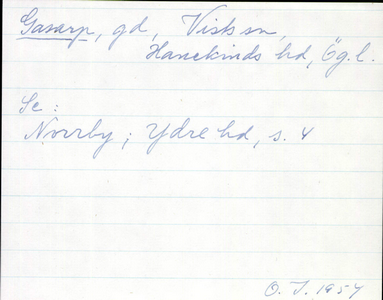 Gasarp, gd, Visk sn,
Hanekinds hd, Ög.l.
Se:
Norrby; Ydre hd, s. 4
O. J. 1954